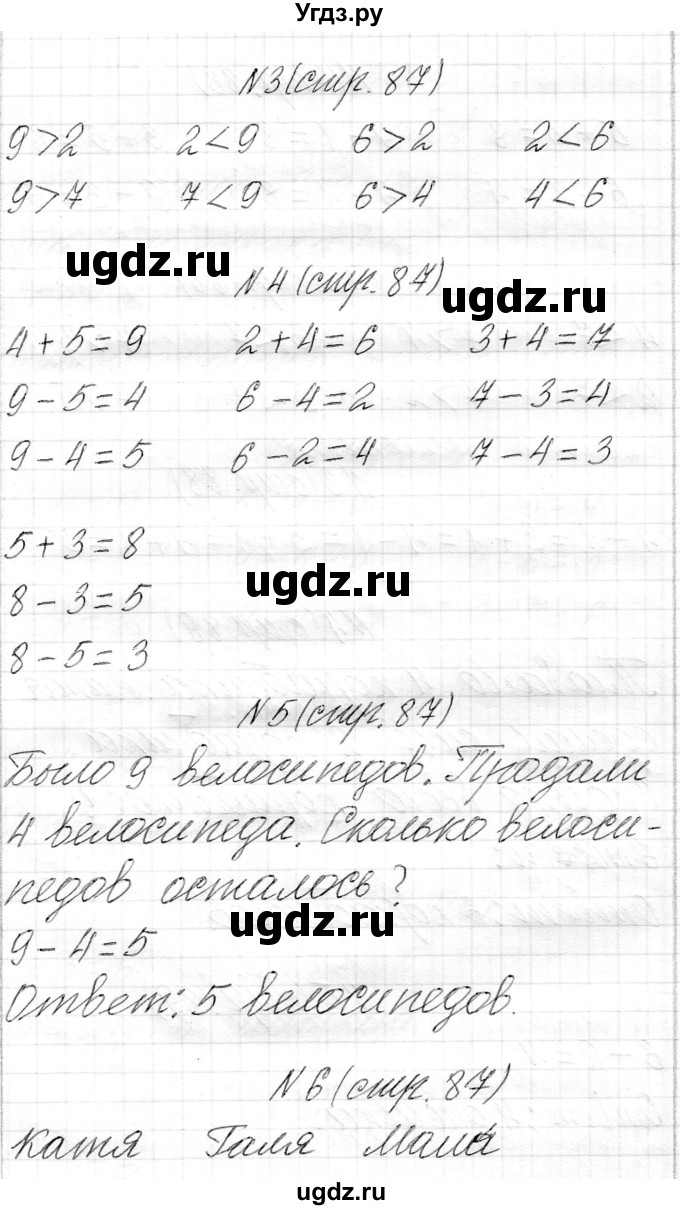 Угдз.ру
№3(стр. 87)
9>2 2<9 6>2 2<6
9>7 7<9 6>4 4<6
ugdz.ru
№4(стр. 87)
ugdz.ru
4+5=9 2+4=6 3+4=7
9-5=4 6-4=2 7-3=4
9-4=5 6-2=4 7-4=3
5+3=8
ugdz.ru
8-3=5
8-5=3
№5(стр. 87)
Было 9 велосипедов. Продали
4 велосипеда. Сколько велоси-
педов осталось?
ugdz.ru
9-4=5
Ответ: 5 велосипедов.
№6(стр. 87)
Катя Галя Маша
ugdz.ru